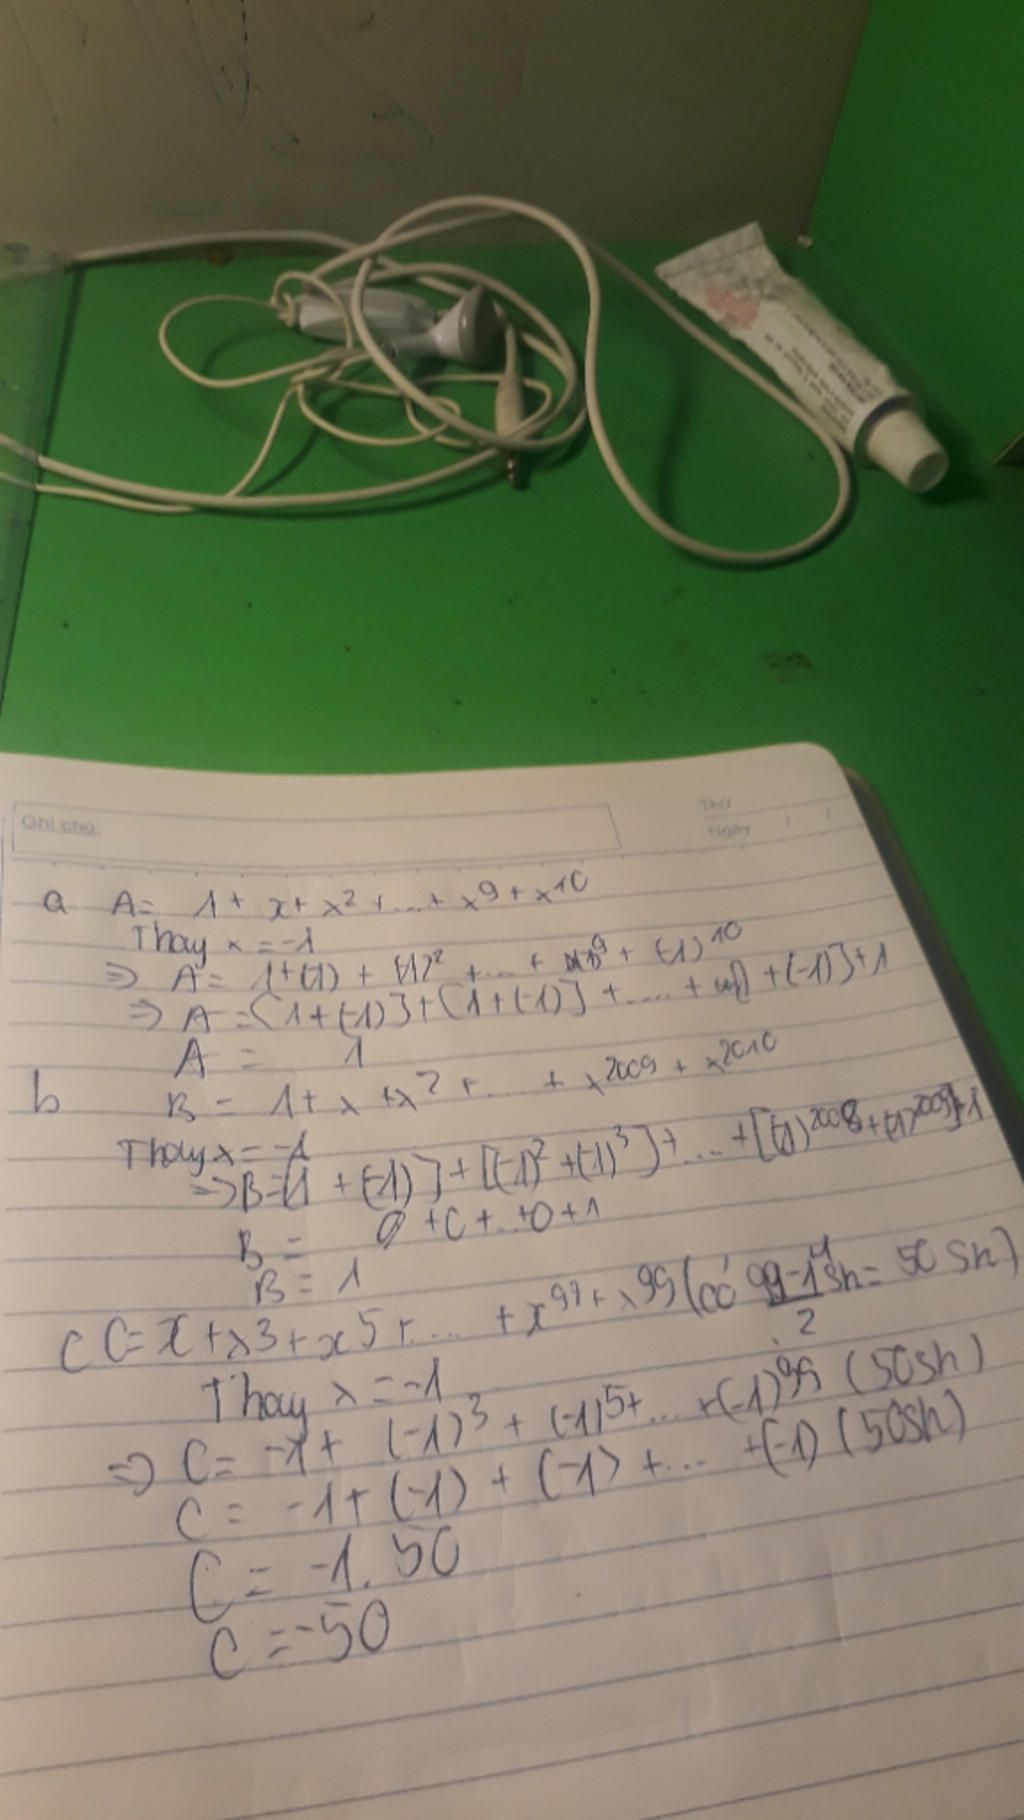 Ghi chú:
Thứ
Ngày
a A = 1 + x + x² + ... + x⁹ + x¹⁰
Thay x = -1
=> A = 1 + (-1) + (-1)² + ... + (-1)⁹ + (-1)¹⁰
=> A = [1 + (-1)] + [1 + (-1)] + .... + + (-1)] + 1
A = 1
b B = 1 + x + x² + .... + x²⁰⁰⁹ + x²⁰¹⁰
Thay x = -1
=> B = [1 + (-1)] + [(-1)² + (-1)³] + ... + [(-1)²⁰⁰⁸ + (-1)²⁰⁰⁹] + 1
B = 0 + 0 + ... + 0 + 1
B = 1
c C = x + x³ + x⁵ + .... + x⁹⁷ + x⁹⁹ (có 99-1/2 sh = 50 sh)
Thay x = -1
=> C = -1 + (-1)³ + (-1)⁵ + ... + (-1)⁹⁹ (50sh)
C = -1 + (-1) + (-1) + ... + (-1) (50sh)
C = -1. 50
C = -50